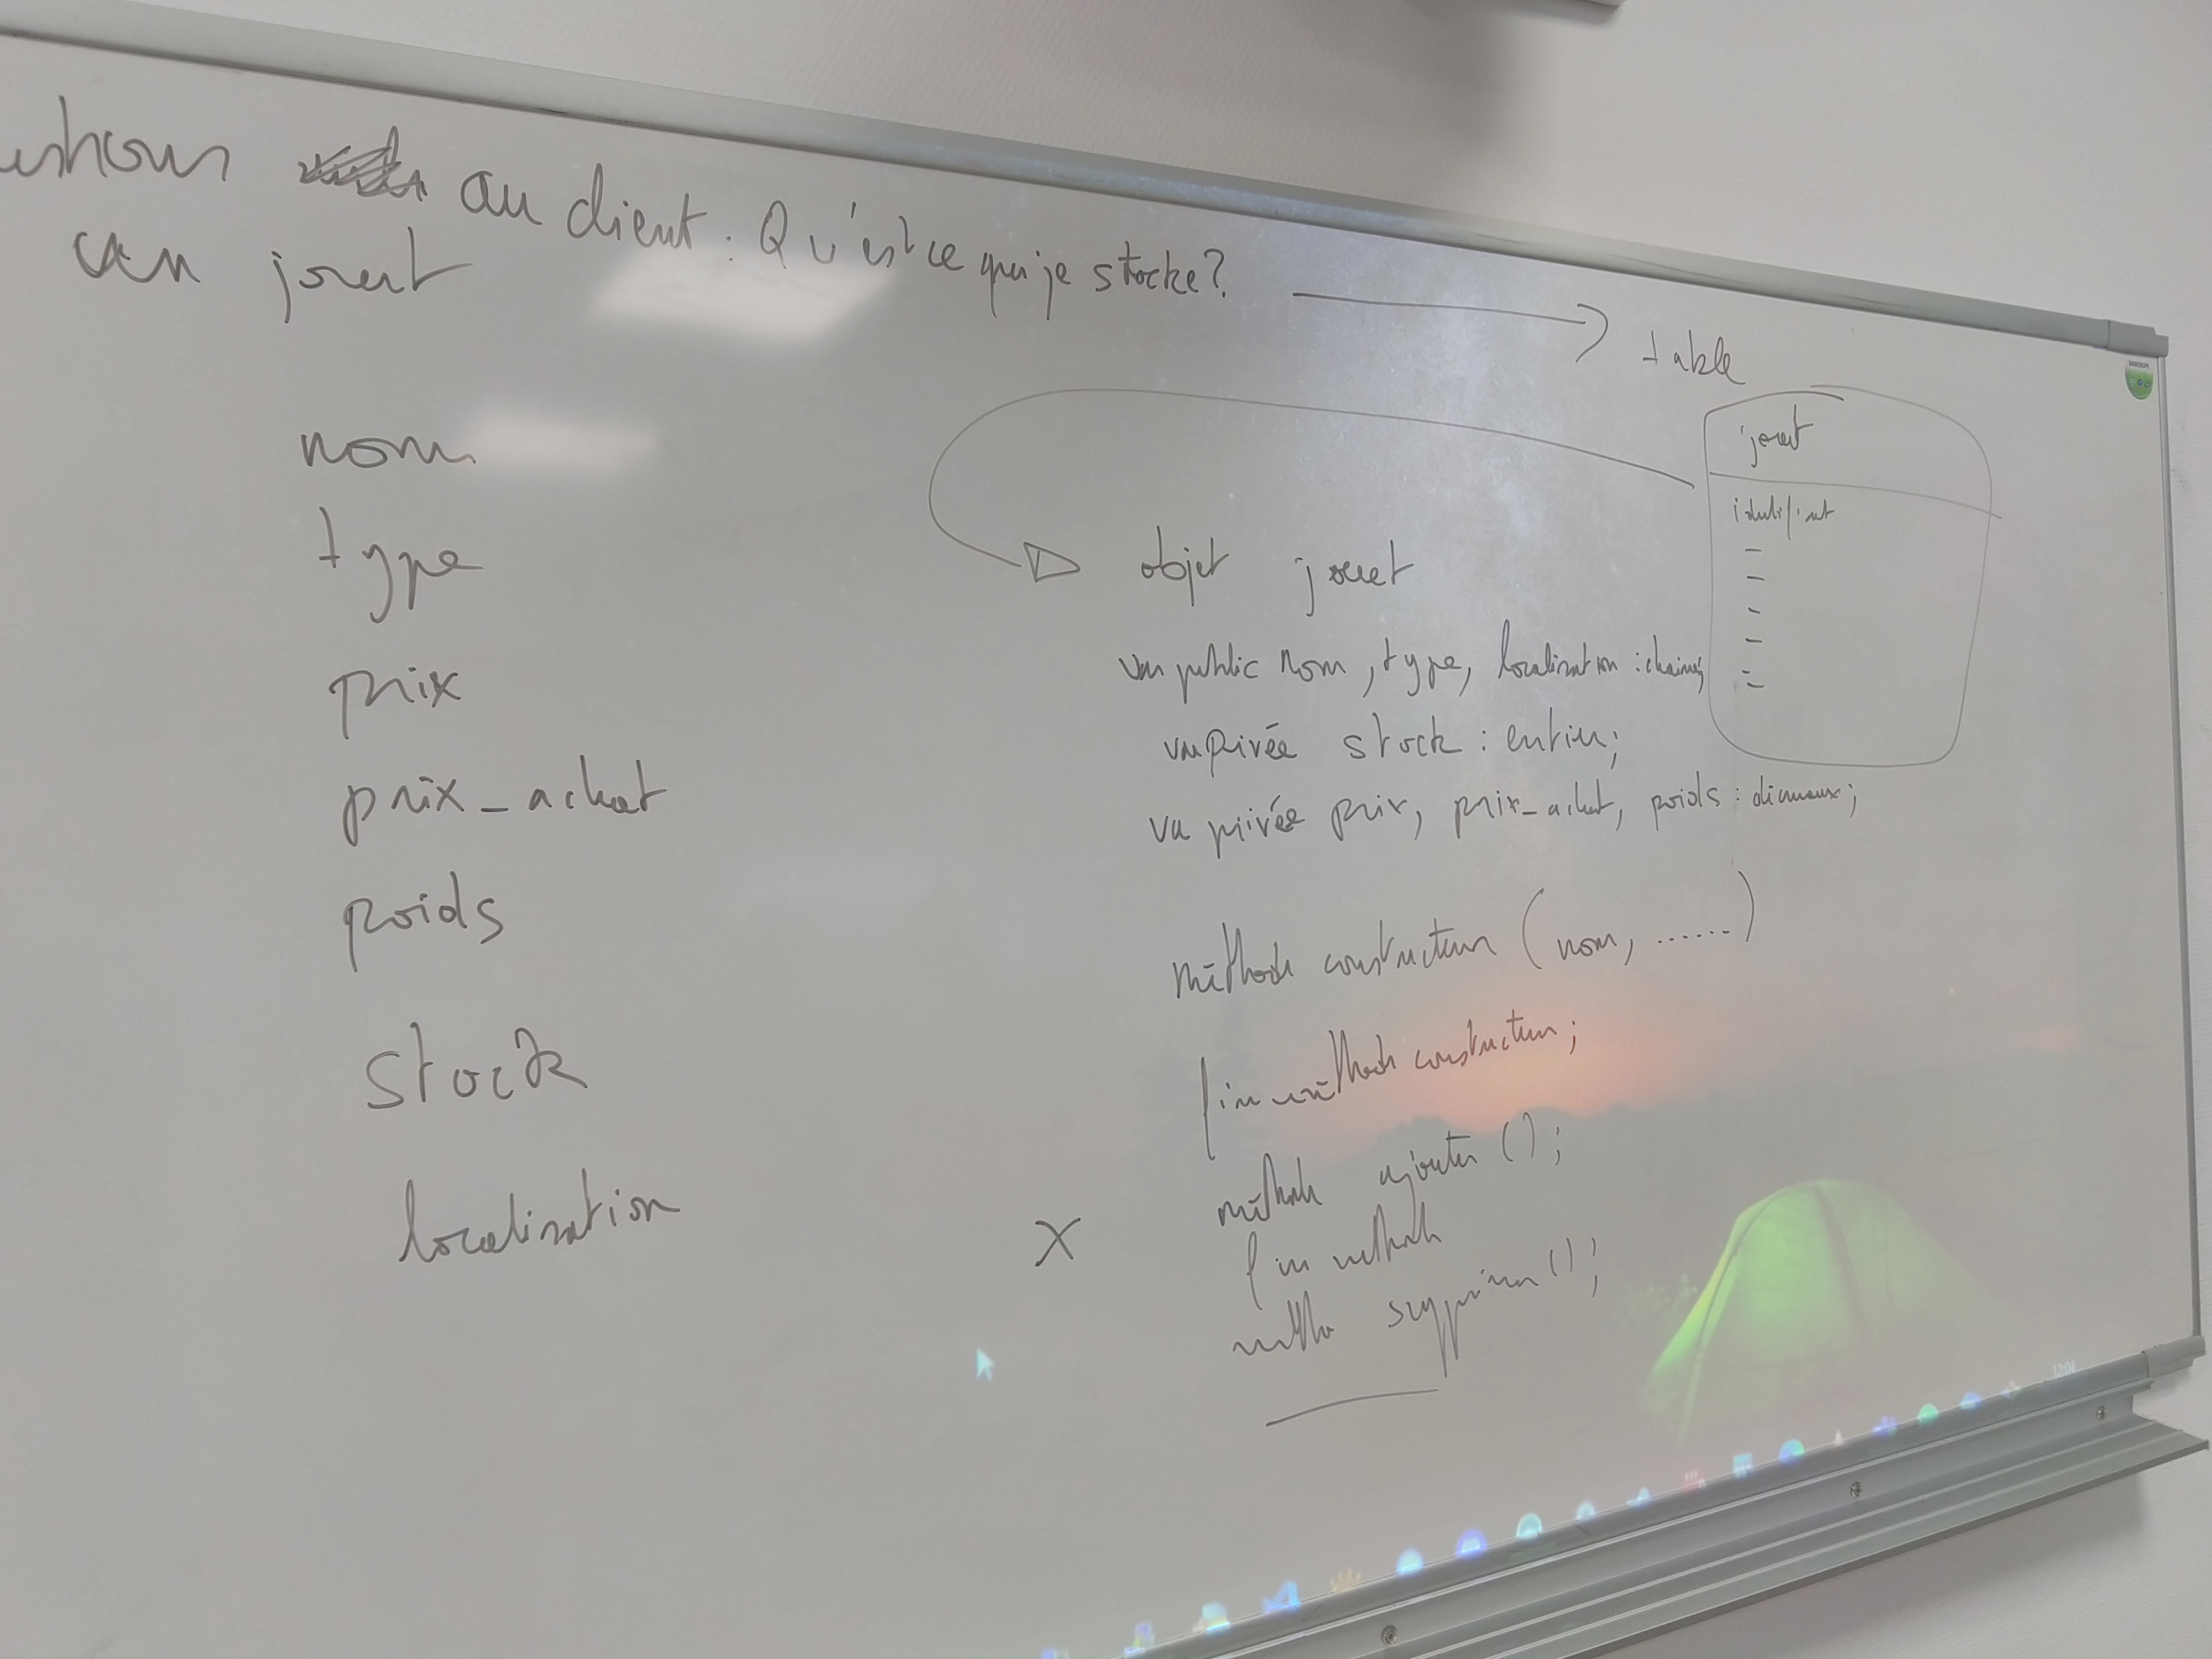 au client : Qu'est ce que je stocke ?
un jouet
table
jouet
identifiant
nom
type
prix
prix_achat
poids
stock
localisation
objet jouet
var public nom, type, localisation : chaines;
var privée stock : entier;
var privée prix, prix_achat, poids : décimaux;
méthode constructeur (nom, ......)
fin méthode constructeur;
méthode ajouter ();
X
fin méthode
méthode supprimer ();
12:04